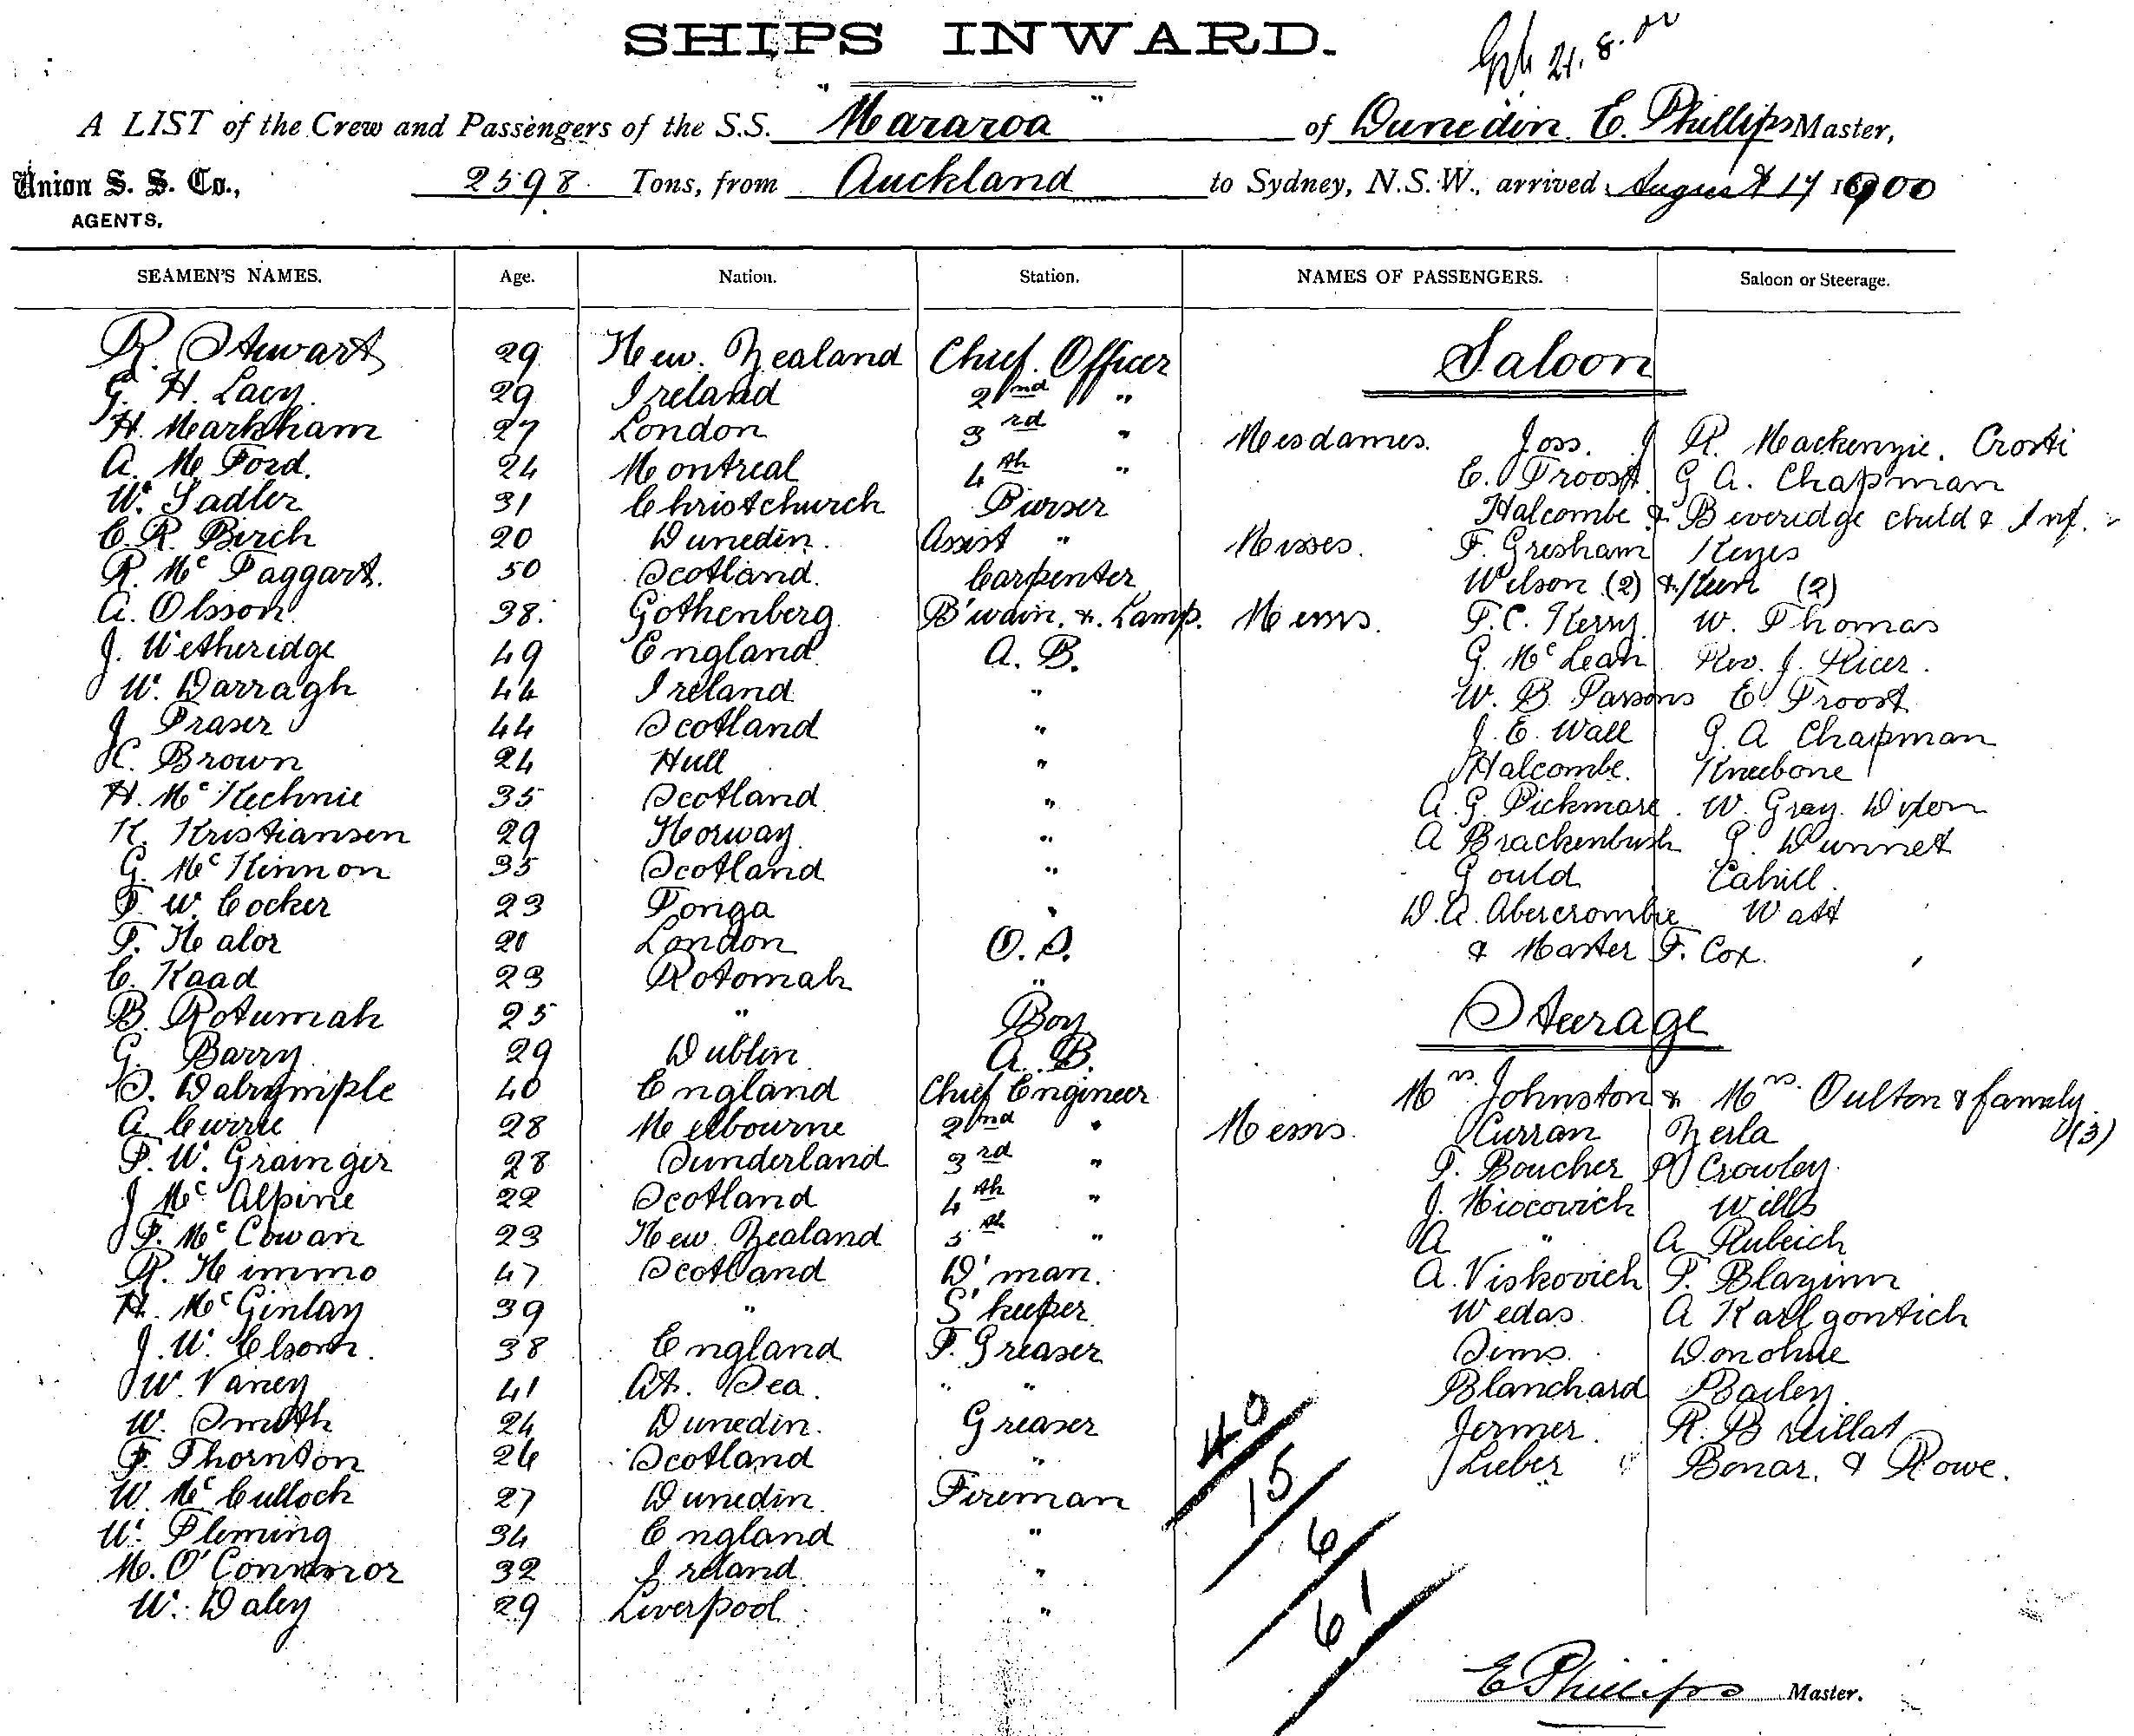 SHIPS INWARD.
21.8.00
A LIST of the Crew and Passengers of the S.S. "Mararoa" of Dunedin E. Phillips Master,
Union S. S. Co., 2598 Tons, from Auckland to Sydney, N.S.W., arrived August 17 1900
AGENTS.
SEAMEN'S NAMES. Age. Nation. Station. NAMES OF PASSENGERS. Saloon or Steerage.
R. Stewart 29 New Zealand Chief Officer Saloon
G. H. Lacy 29 Ireland 2nd "
H. Markham 27 London 3rd " Mesdames. Joss. J R. Mackenzie. Crosti
A. M. Ford. 24 Montreal 4th " E. Troost G A. Chapman
W. Sadler 31 Christchurch Purser Halcombe & Beveridge child & Inf.
C. R. Birch 20 Dunedin. Assist " Misses. F. Gresham Keyes
R. McTaggart. 50 Scotland. Carpenter Wilson (2) & (2)
A. Olsson 38. Gothenberg B'wain. & Lamp. Messrs. F. C. Kerry W. Thomas
J. Wetheridge 49 England A. B. G. McLean Rev. J. Ricer.
W. Darragh 44 Ireland " W. B. Parsons E. Troost
J Fraser 44 Scotland " J. E. Wall G. A Chapman
C. Brown 24 Hull " Halcombe. Kneebone
H. McKechnie 35 Scotland " A. G. Pickmore. W. Gray. Dixon
K. Kristiansen 29 Norway " A Brackenbush G. Dunnet
G. McKinnon 35 Scotland " Gould Cahill.
F. W. Cocker 23 Tonga " D. A. Abercrombie Watt
F. Nealor 20 London O. S. & Master F. Cox.
C. Kaad 23 Rotomah "
B. Rotumah 25 " Boy Steerage
G. Barry 29 Dublin A. B.
S. Dalrymple 40 England Chief Engineer Mrs. Johnston & Mrs. Oulton & family (3)
A. Currie 28 Melbourne 2nd " Messrs. Curran Zerla
F. W. Grainger 28 Sunderland 3rd " F. Boucher P Crowley
J McAlpine 22 Scotland 4th " J. Miocovich Wills
F. McCowan 23 New Zealand 5th " A " A Rubeich
R. Nimmo 47 Scotland D'man. A. Viskovich F. Blazinn
H. McGinlay 39 " S'keeper Wedas A Karlgontich
J. W. Elsom. 38 England F. Greaser Sims. Donohue
W. Vaney 41 At. Sea. " " Blanchard Bailey
W. Smith 24 Dunedin. Greaser Jermer. R. B
F. Thornton 26 Scotland " Lieber Bonar. & Rowe.
W. McCulloch 27 Dunedin Fireman
W. Fleming 34 England "
M. O'Connor 32 Ireland "
W. Daley 29 Liverpool "
40
15
6
61
E Phillips Master.